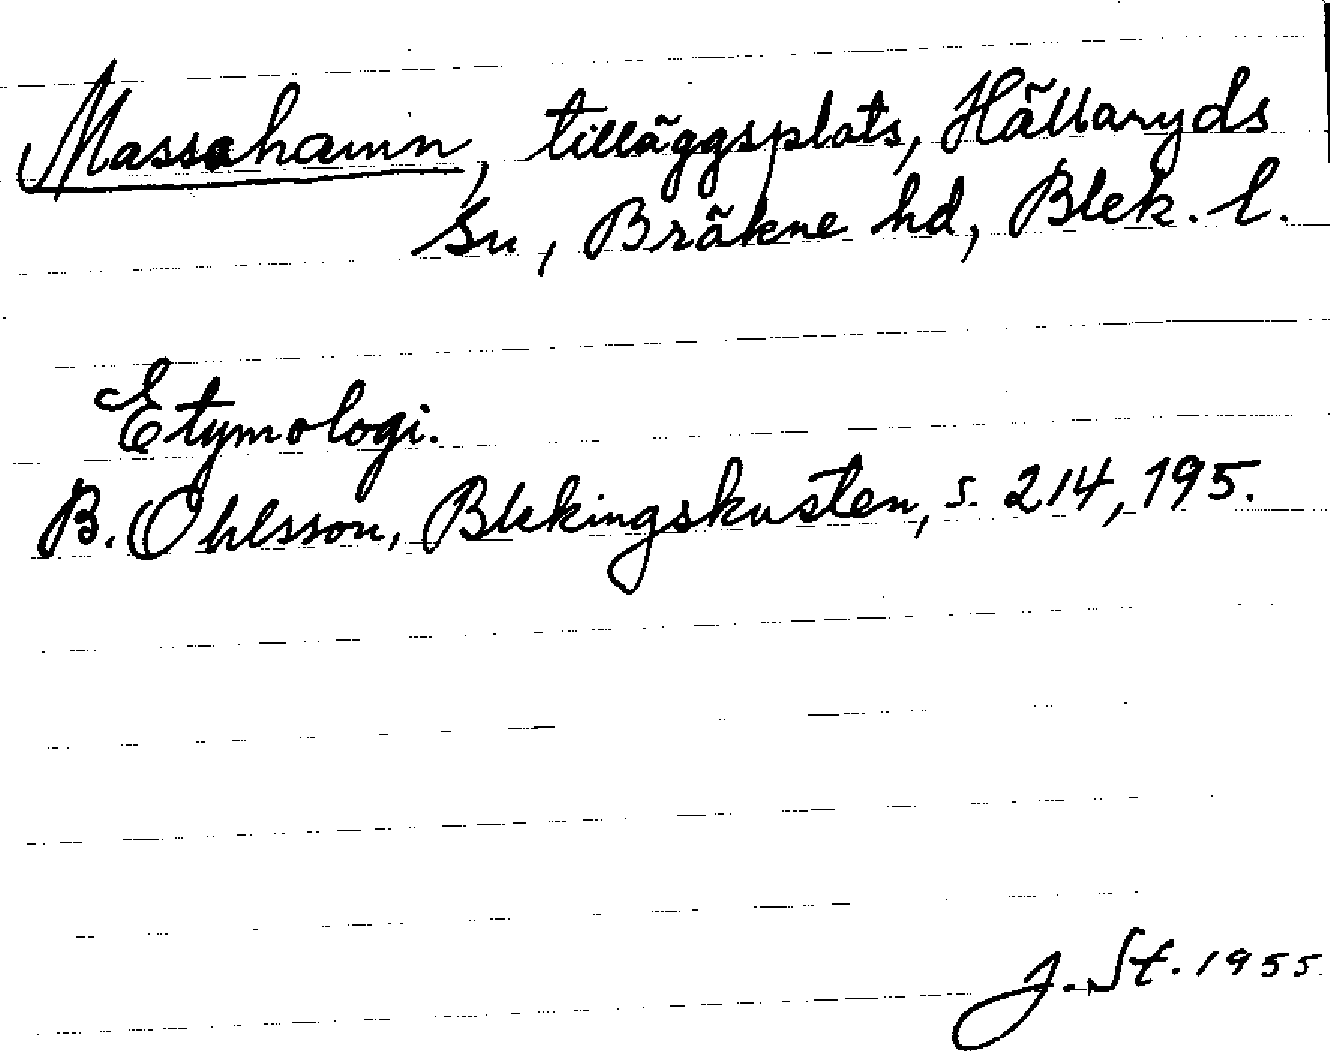 Massahamn, tilläggsplats, Hällaryds
sn, Bräkne hd, Blek. l.
Etymologi.
B. Ohlsson, Blekingskusten, s. 214, 195.
J. St. 1955